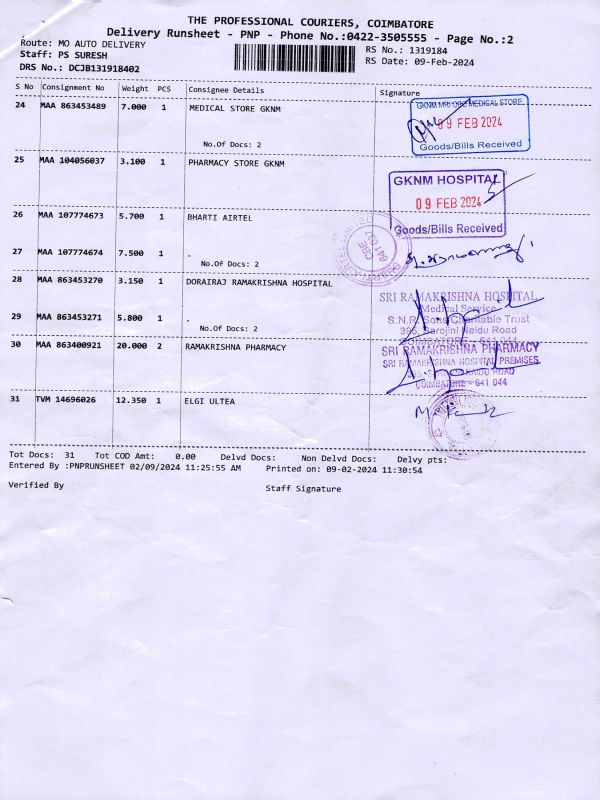 THE PROFESSIONAL COURIERS, COIMBATORE
Delivery Runsheet - PNP - Phone No.:0422-3505555 - Page No.:2
Route: MO AUTO DELIVERY
RS No.: 1319184
Staff: PS SURESH
RS Date: 09-Feb-2024
DRS No.: DCJB131918402
S No Consignment No Weight PCS Consignee Details Signature
24 MAA 863453489 7.000 1 MEDICAL STORE GKNM
No.Of Docs: 2
GKNM MEDICAL STORE
09 FEB 2024
Goods/Bills Received
25 MAA 104056037 3.100 1 PHARMACY STORE GKNM
GKNM HOSPITAL
09 FEB 2024
Goods/Bills Received
26 MAA 107774673 5.700 1 BHARTI AIRTEL
CBE
641 037
27 MAA 107774674 7.500 1 .
No.Of Docs: 2
28 MAA 863453270 3.150 1 DORAIRAJ RAMAKRISHNA HOSPITAL
SRI RAMAKRISHNA HOSPITAL
Medical Service
S.N.R. Sons Charitable Trust
395, Sarojini Naidu Road
COIMBATORE - 641 044
29 MAA 863453271 5.800 1 .
No.Of Docs: 2
30 MAA 863400921 20.000 2 RAMAKRISHNA PHARMACY
SRI RAMAKRISHNA PHARMACY
SRI RAMAKRISHNA HOSPITAL PREMISES
NAIDU ROAD
COIMBATORE - 641 044
31 TVM 14696026 12.350 1 ELGI ULTEA
Tot Docs: 31 Tot COD Amt: 0.00 Delvd Docs: Non Delvd Docs: Delvy pts:
Entered By :PNPRUNSHEET 02/09/2024 11:25:55 AM Printed on: 09-02-2024 11:30:54
Verified By Staff Signature